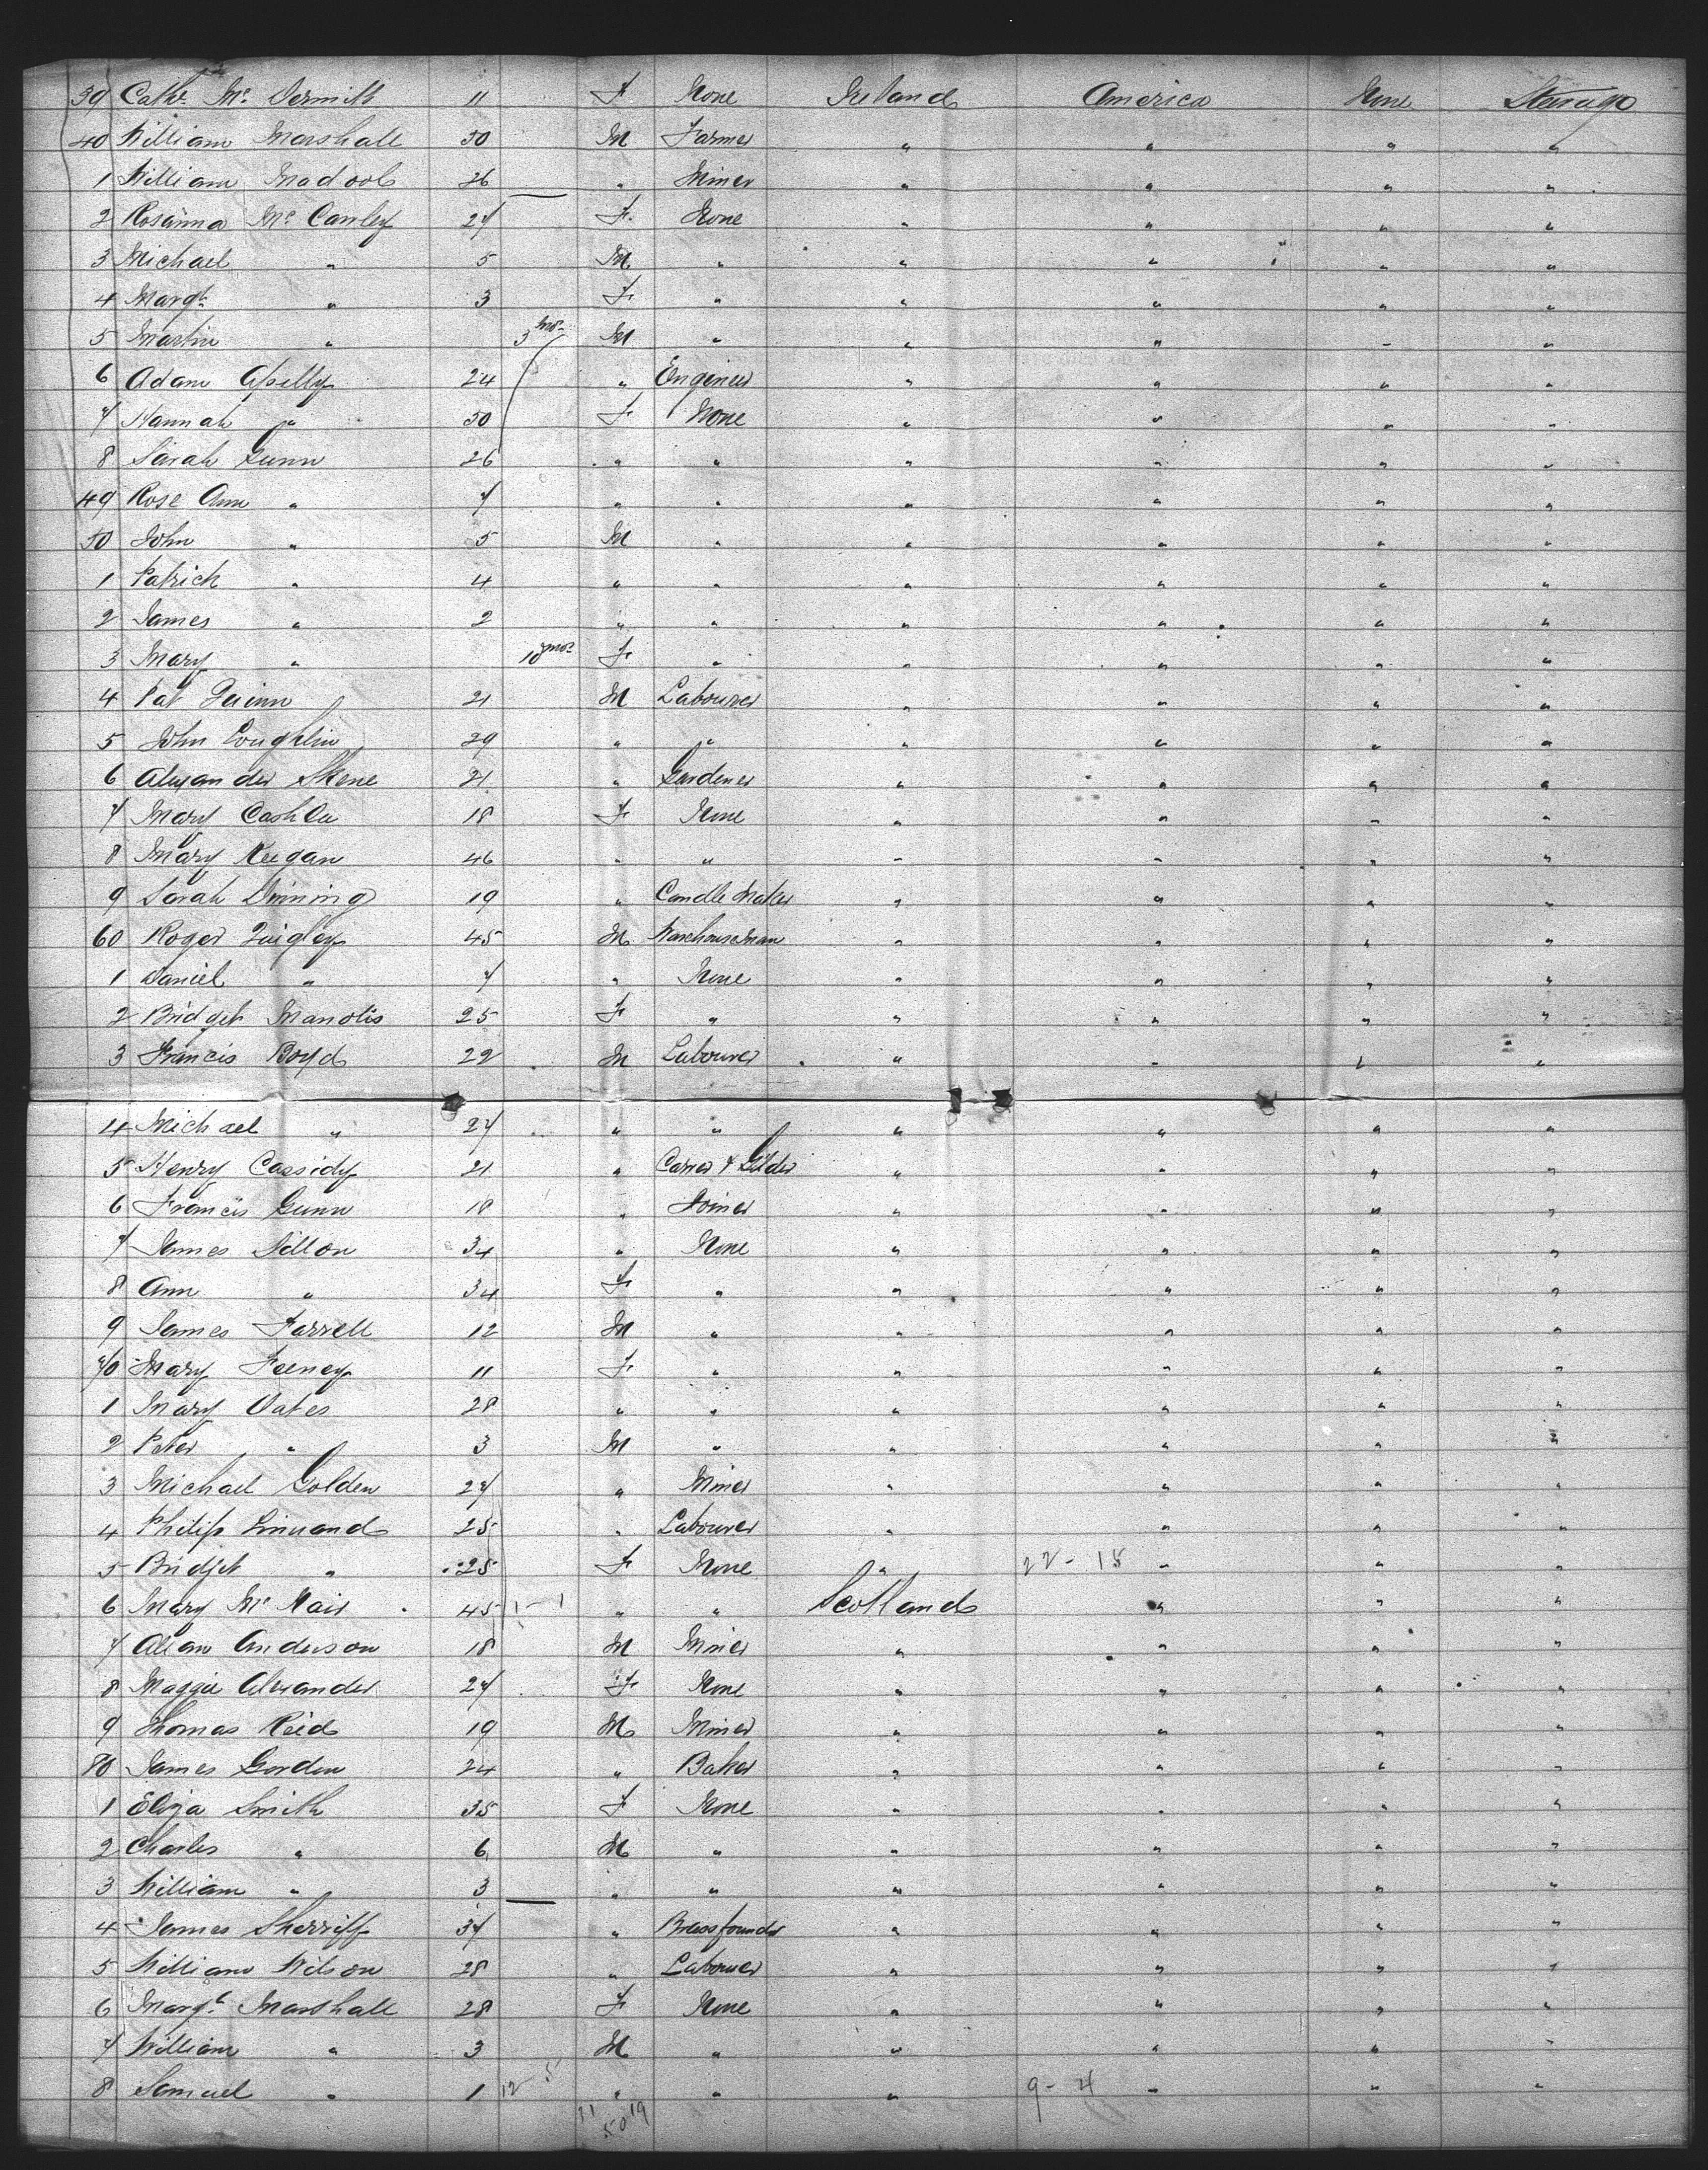 39 Cathe Mc Dermitt 11 F None Ireland America None Steerage
40 William Marshall 50 M Farmer " " " "
1 William 26 " Miner " " " "
2 Rosanna Mc Canley 27 F. None " " " "
3 Michael " 5 M " " " " "
4 Margt " 3 F " " " " "
5 Martin " 3 mos M " " " - "
6 Adam 24 " Engineer " " " "
7 Hannah " 30 F None " " " "
8 Sarah Gunn 26 " " " " " "
49 Rose Ann " 7 " " " " " "
50 John " 5 M " " " " "
1 Patrick " 4 " " " " " "
2 James " 2 " " " " " "
3 Mary " 10 mos F " " " " "
4 Pat Quinn 21 M Labourer " " " "
5 John Coughlin 29 " " " " " "
6 Alexander Skene 21 " Gardener " " " "
7 Mary 18 F None " " " "
8 Mary Keegan 46 " " " " " "
9 Sarah Dinning 19 " Candle Maker " " " "
60 Roger Quigley 45 M Warehouseman " " " "
1 Daniel " 7 " None " " " "
2 Bridget 25 F " " " " "
3 Francis Boyd 22 M Labourer " " " "
4 Michael " 27 " " " " " "
5 Henry Cassidy 21 " Carver & Gilder " " " "
6 Francis Gunn 18 " Joiner " " " "
7 James Dillon 34 " None " " " "
8 Ann " 34 F " " " " "
9 James Farrell 12 M " " " " "
70 Mary Feeney 11 F " " " " "
1 Mary Oates 28 " " " " " "
2 Peter " 3 M " " " " "
3 Michael Golden 27 " Miner " " " "
4 Philip 25 " Labourer " " " "
5 Bridget " 25 F None " 22 - 15 " " "
6 Mary Mc Nair 45 1 - 1 " " Scotland " " "
7 Allan Anderson 18 M Miner " " " "
8 Maggie Alexander 27 F None " " " "
9 Thomas Reid 19 M Miner " " " "
80 James Gordon 24 " Baker " " " "
1 Eliza Smith 35 F None " " " "
2 Charles " 6 M " " " " "
3 William " 3 " " " " " "
4 James Sherriff 37 " Brassfounder " " " "
5 William Wilson 28 " Labourer " " " "
6 Margt Marshall 28 F None " " " "
7 William " 3 M " " " " "
8 Samuel " 1 12 - 5 " " " 9 - 4 " " "
31 50 19